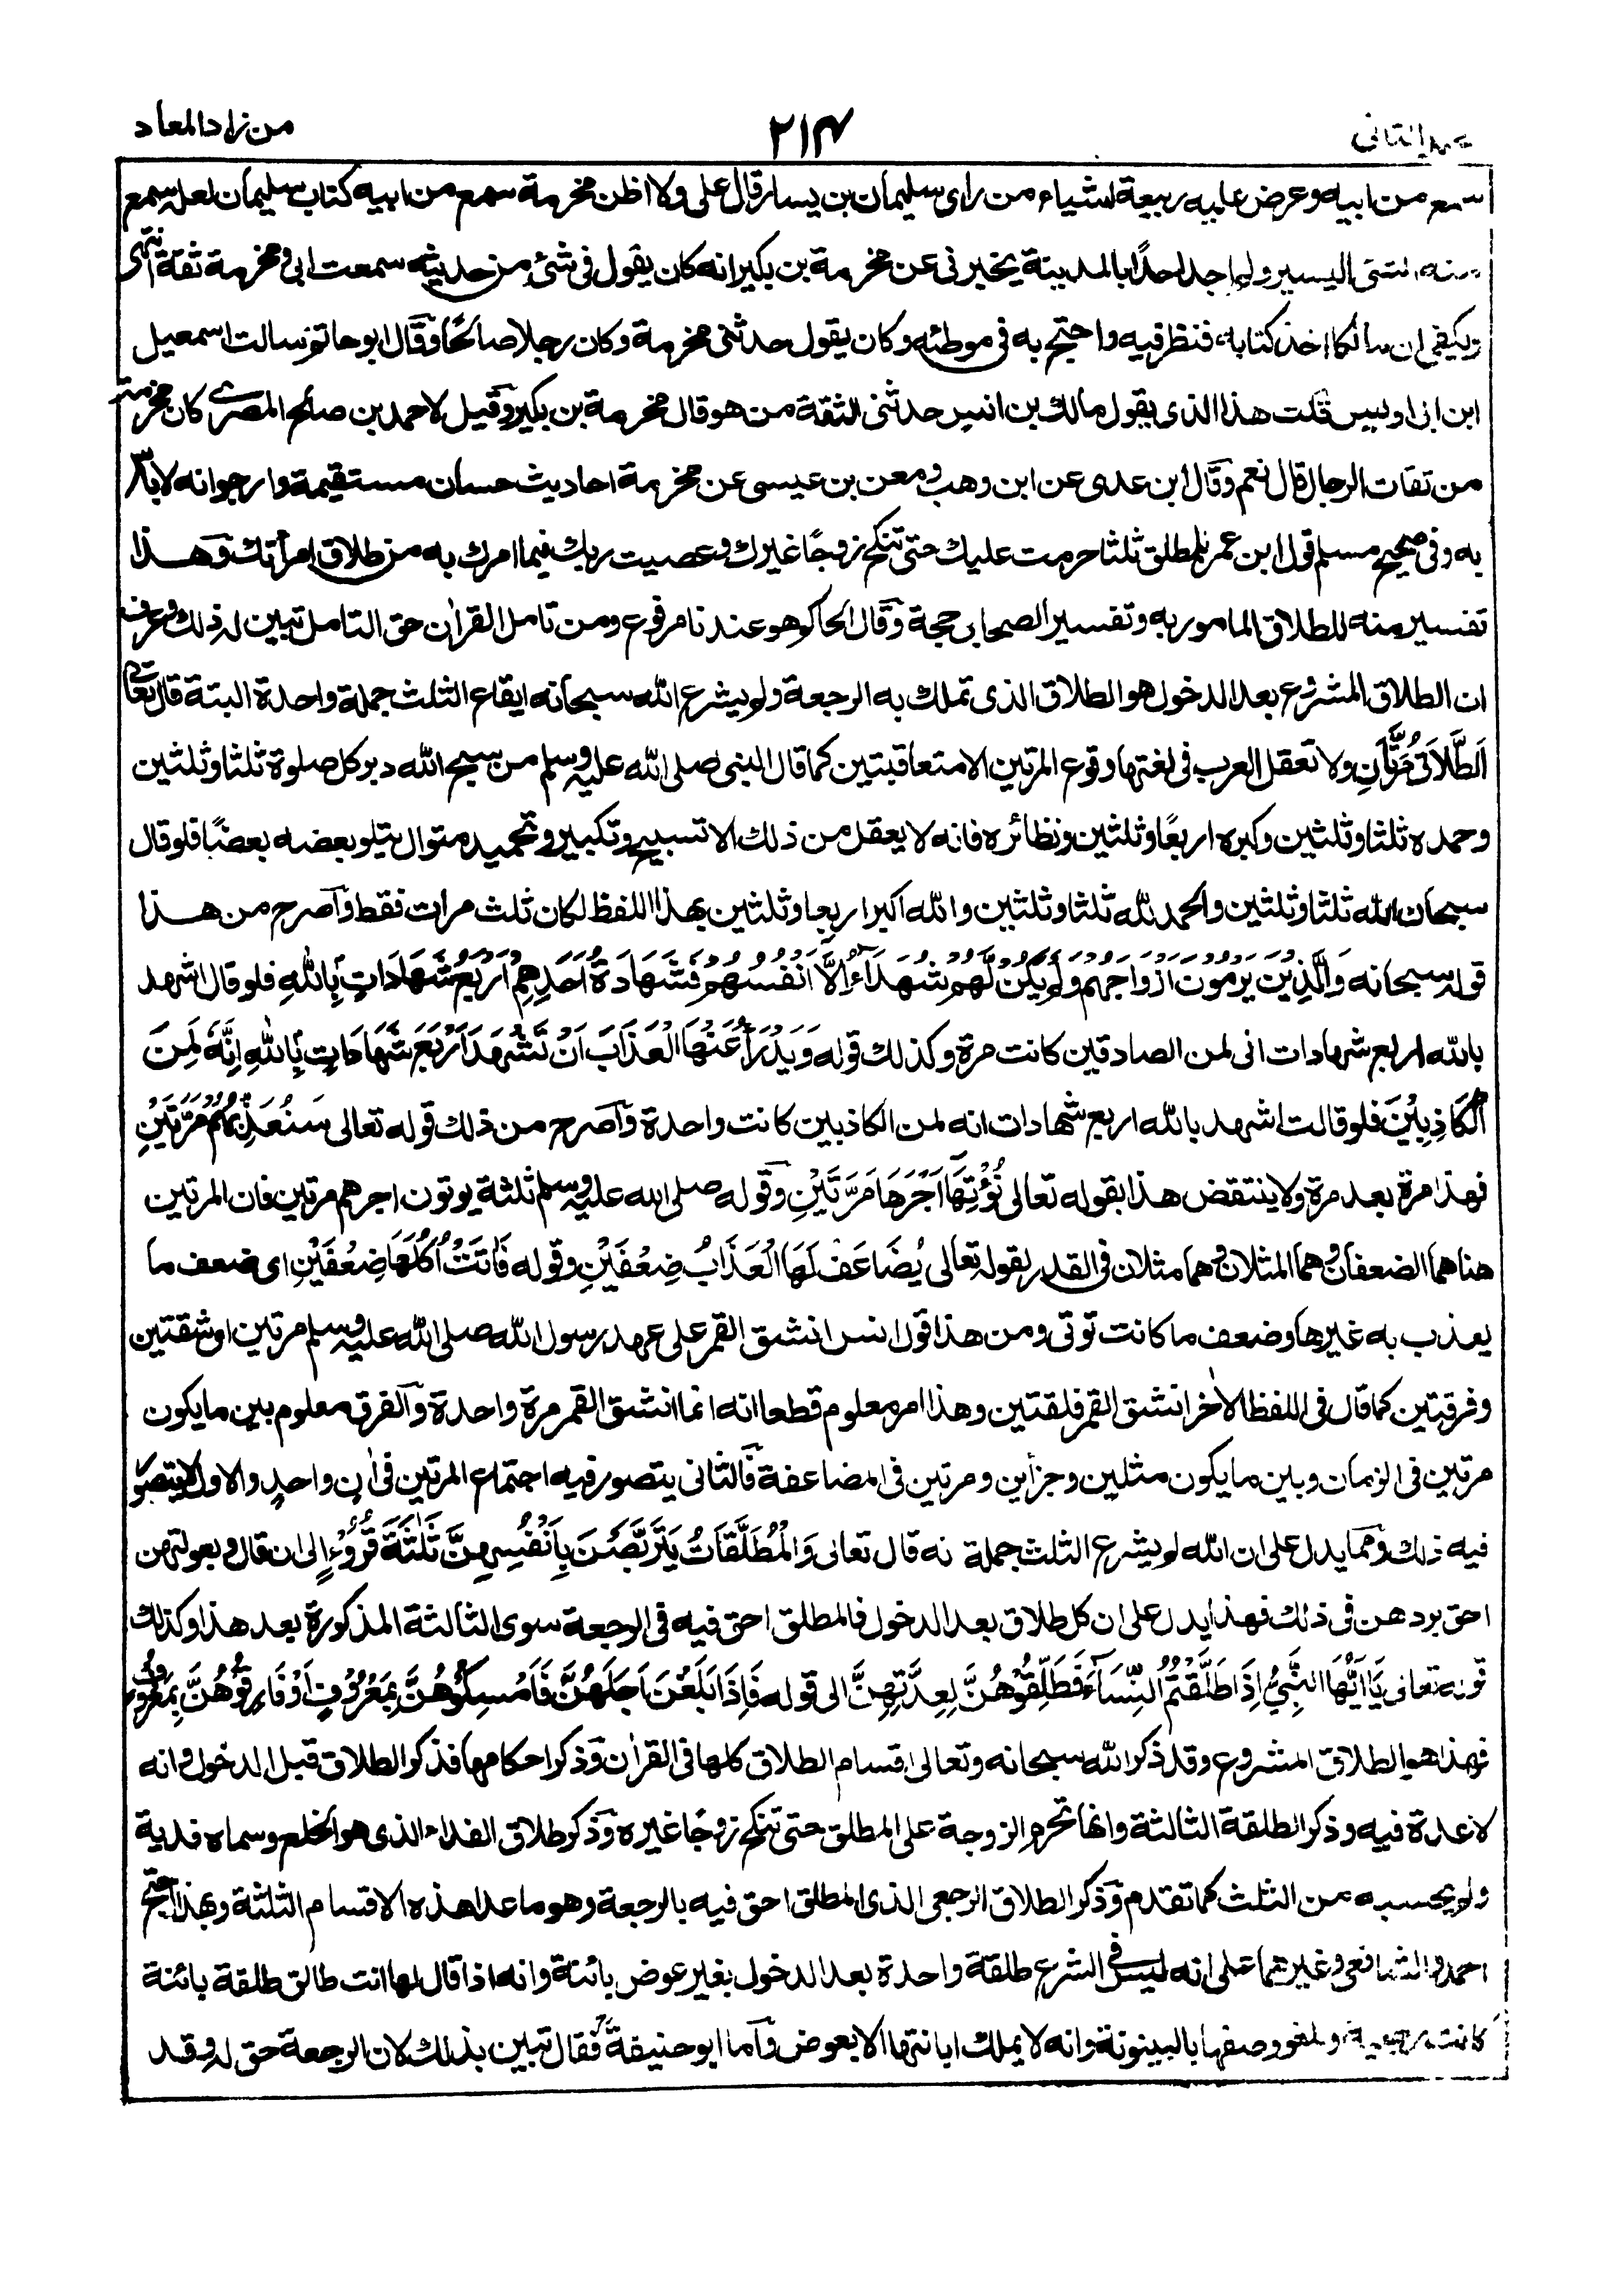 من زاد المعاد
٢١٤
سمع من ابيه وعرض عليه ربيعة اشياء من راى سليمان بن يسار قال على ولا اظن مخرمة سمع من ابيه كتاب سليمان لعله سمع
منه الشئ اليسير ولم اجد احدًا بالمدينة يخبرنى عن مخرمة بن بكير انه كان يقول فى شئ من حديثه سمعت ابى ومخرمة ثقة انتهى
ويكفى ان مالكا اخذ كتابه، فنظر فيه واحتج به فى موطئه وكان يقول حدثنى مخرمة وكان رجلا صالحًا وقال ابو حاتم سالت اسمعيل
ابن ابى اويس قلت هذا الذى يقول مالك بن انس حدثنى الثقة من هو قال مخرمة بن بكير وقيل لاحمد بن صالح المصرى كان مخرمة
من ثقات الرجال قال نعم وقال ابن عدى عن ابن وهب ومعن بن عيسى عن مخرمة احاديث حسان مستقيمة وارجو انه لا باس
به وفى صحيح مسلم قول ابن عمر للمطلق ثلثا حرمت عليك حتى تنكح زوجًا غيرك وعصيت ربك فيما امرك به من طلاق امرأتك وهذا
تفسير منه للطلاق المامور به وتفسير الصحابى حجة وقال الحاكم هو عندنا مرفوع ومن تامل القراٰن حق التامل تبين له ذلك وعرف
ان الطلاق المشروع بعد الدخول هو الطلاق الذى تملك به الرجعة ولم يشرع الله سبحانه ايقاع الثلث جملة واحدة البتة قال تعالى
اَلطَّلَاقُ مَرَّتَانِ ولا تعقل العرب فى لغتها وقوع المرتين الا متعاقبتين كما قال النبى صلى الله عليه وسلم من سبح الله دبر كل صلوة ثلثا وثلثين
وحمده ثلثا وثلثين وكبره اربعًا وثلثين ونظائره فانه لا يعقل من ذلك الا تسبيح وتكبير وتحميد متوال يتلو بعضه بعضًا فلو قال
سبحان الله ثلثا وثلثين والحمد لله ثلثا وثلثين والله اكبر اربعا وثلثين بهذا اللفظ لكان ثلث مرات فقط وآصرح من هذا
قوله سبحانه وَالَّذِيْنَ يَرْمُوْنَ اَزْوَاجَهُمْ وَلَمْ يَكُنْ لَّهُمْ شُهَدَآءُ اِلَّا اَنْفُسُهُمْ فَشَهَادَةُ اَحَدِهِمْ اَرْبَعُ شَهَادَاتٍ بِاللّٰهِ فلو قال اشهد
بالله اربع شهادات انى لمن الصادقين كانت مرة وكذلك قوله وَيَدْرَأُ عَنْهَا الْعَذَابَ اَنْ تَشْهَدَ اَرْبَعَ شَهَادَاتٍ بِاللّٰهِ اِنَّهٗ لَمِنَ
الْكَاذِبِيْنَ فلو قالت اشهد بالله اربع شهادات انه لمن الكاذبين كانت واحدة وآصرح من ذلك قوله تعالى سَنُعَذِّبُهُمْ مَرَّتَيْنِ
فهذا مرة بعد مرة ولا ينتقض هذا بقوله تعالى نُؤْتِهَا اَجْرَهَا مَرَّتَيْنِ وقوله صلى الله عليه وسلم ثلثة يوتون اجرهم مرتين فان المرتين
هنا هما الضعفان وهما المثلان وهما مثلان فى القدر لقوله تعالى يُضَاعَفْ لَهَا الْعَذَابُ ضِعْفَيْنِ وقوله فَاٰتَتْ اُكُلَهَا ضِعْفَيْنِ اى ضعف ما
يعذب به غيرها وضعف ما كانت توتى ومن هذا قول انس انشق القمر على عهد رسول الله صلى الله عليه وسلم مرتين اى شقتين
وفرقتين كما قال فى اللفظ الاٰخر انشق القمر فلقتين وهذا امر معلوم قطعا انه انما انشق القمر مرة واحدة وآلفرق معلوم بين ما يكون
مرتين فى الزمان وبين ما يكون مثلين وجزأين ومرتين فى المضاعفة فآلثانى يتصور فيه اجتماع المرتين فى اٰن واحد والاول لا يتصور
فيه ذلك ومما يدل على ان الله لم يشرع الثلث جملة انه قال تعالى وَالْمُطَلَّقَاتُ يَتَرَبَّصْنَ بِاَنْفُسِهِنَّ ثَلٰثَةَ قُرُوْءٍ الى ان قال وبعولتهن
احق بردهن فى ذلك فهذا يدل على ان كل طلاق بعد الدخول فالمطلق احق فيه فى الرجعة سوى الثالثة المذكورة بعد هذا وكذلك
قوله تعالى يٰٓاَيُّهَا النَّبِيُّ اِذَا طَلَّقْتُمُ النِّسَآءَ فَطَلِّقُوْهُنَّ لِعِدَّتِهِنَّ الى قوله فَاِذَا بَلَغْنَ اَجَلَهُنَّ فَاَمْسِكُوْهُنَّ بِمَعْرُوْفٍ اَوْ فَارِقُوْهُنَّ بِمَعْرُوْفٍ
فهذا هو الطلاق المشروع وقد ذكر الله سبحانه وتعالى اقسام الطلاق كلها فى القراٰن وذكر احكامها فذكر الطلاق قبل الدخول وانه
لا عدة فيه وذكر الطلقة الثالثة وانها تحرم الزوجة على المطلق حتى تنكح زوجًا غيره وذكر طلاق الفداء الذى هو الخلع وسماه فدية
ولم يحسبه من الثلث كما تقدم وذكر الطلاق الرجعى الذى المطلق احق فيه بالرجعة وهو ما عدا هذه الاقسام الثلثة وبهذا احتج
احمد والشافعى وغيرهما على انه ليس فى الشرع طلقة واحدة بعد الدخول بغير عوض بائنة وانه اذا قال لها انت طالق طلقة بائنة
كانت رجعية ويلغو وصفها بالبينونة وانه لا يملك ابانتها الا بعوض وآما ابو حنيفة فقال تبين بذلك لان الرجعة حق له وقد